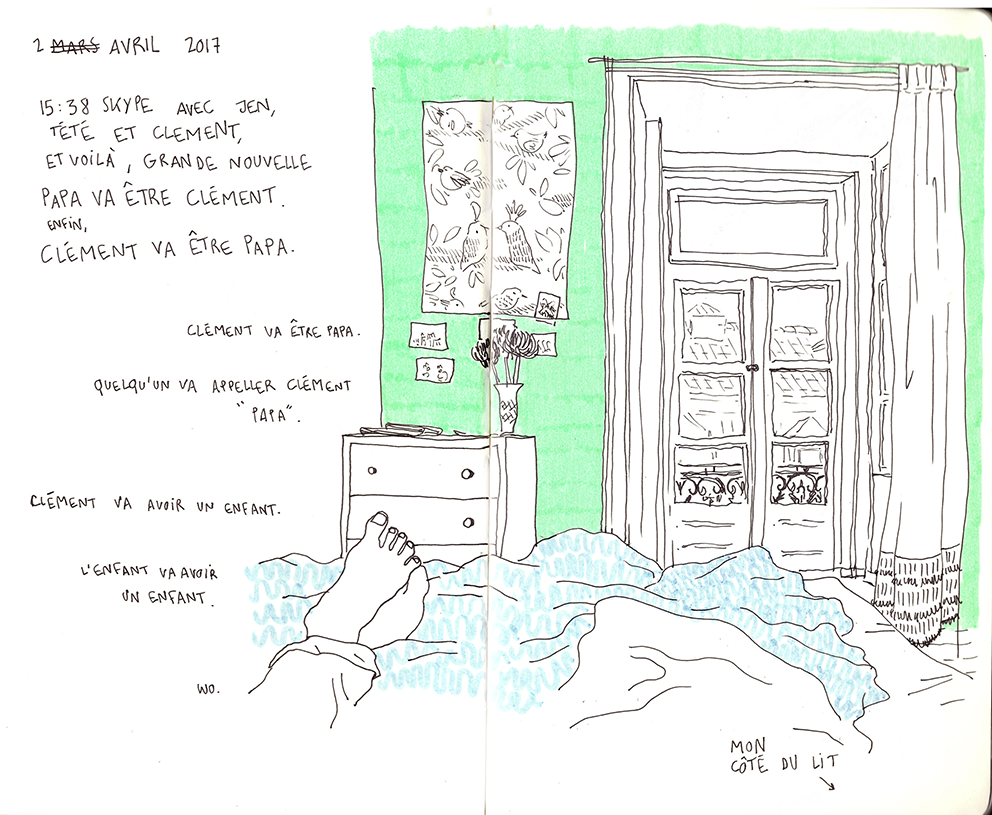 2 MARS AVRIL 2017
15:38 SKYPE AVEC JEN,
TÉTÉ ET CLEMENT,
ET VOILÀ, GRANDE NOUVELLE
PAPA VA ÊTRE CLÉMENT.
ENFIN,
CLÉMENT VA ÊTRE PAPA.
CLÉMENT VA ÊTRE PAPA.
QUELQU'UN VA APPELLER CLÉMENT
"PAPA".
CLÉMENT VA AVOIR UN ENFANT.
L'ENFANT VA AVOIR
UN ENFANT.
WO.
MON
CÔTÉ DU LIT